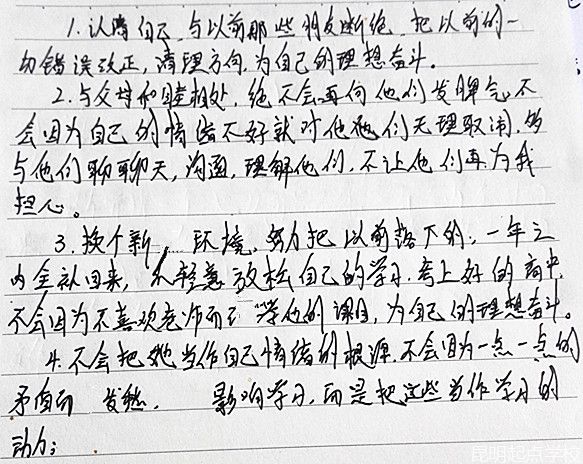 1. 认清自己,与以前那些朋友断绝,把以前的一
切错误改正,清理方向,为自己的理想奋斗。
2. 与父母和睦相处,绝不会再向他们发脾气,不
会因为自己的情绪不好就对他他们无理取闹,多
与他们聊聊天,沟通,理解他们,不让他们再为我
担心。
3. 换个新,环境,努力把以前落下的,一年之
内全补回来,不轻易放松自己的学习,考上好的高中,
不会因为不喜欢老师而不学他的课目,为自己的理想奋斗。
4. 不会把她当作自己情绪的根源,不会因为一点一点的
矛盾而发愁, 影响学习,而是把这些当作学习的
动力;
昆明起点学校